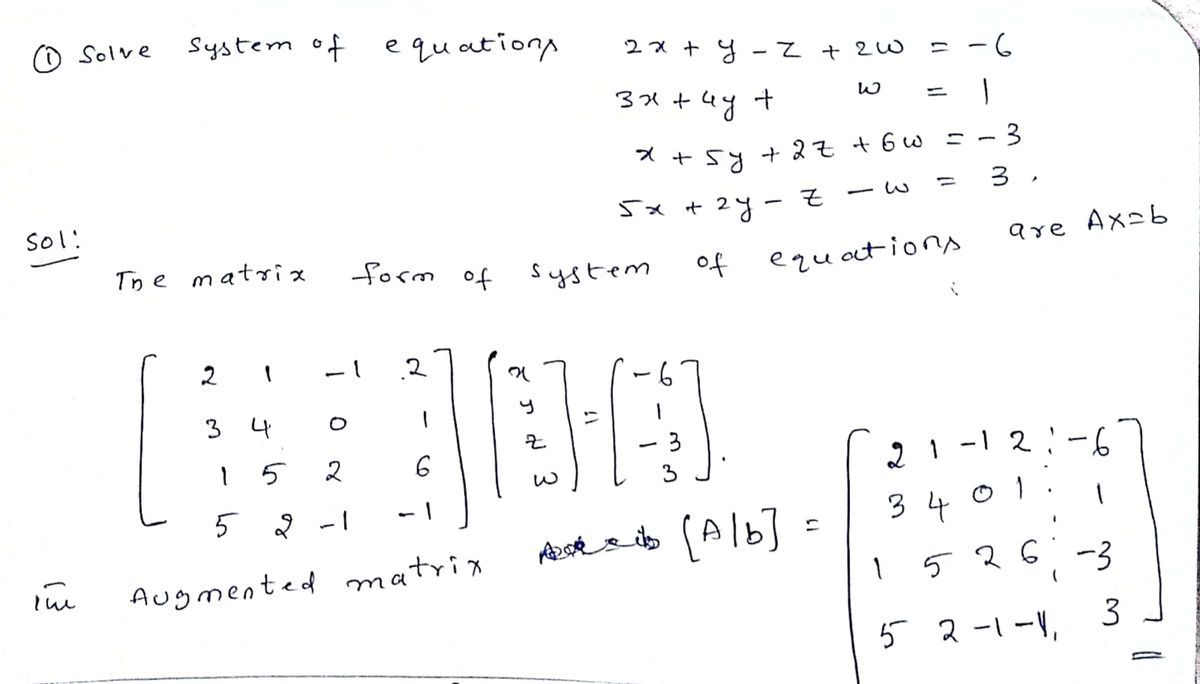 ① Solve System of equations 2x + y - z + 2w = -6
3x + 4y + w = 1
x + 5y + 2z + 6w = -3
5x + 2y - z - w = 3.
Sol:
The matrix form of system of equations are Ax=b
[ 2 1 -1 2 ] [ x ] = [ -6 ]
[ 3 4 0 1 ] [ y ] [ 1 ]
[ 1 5 2 6 ] [ z ] [ -3 ]
[ 5 2 -1 -1 ] [ w ] [ 3 ].
Augmented matrix [A|b] =
[ 2 1 -1 2 : -6 ]
[ 3 4 0 1 : 1 ]
[ 1 5 2 6 : -3 ]
[ 5 2 -1 -1 : 3 ]